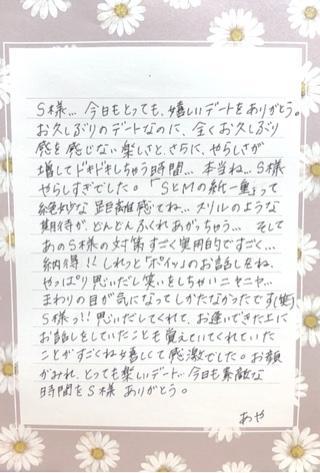 S様… 今日もとっても、嬉しいデートをありがとう。
お久しぶりのデートなのに、全くお久しぶり
感を感じない楽しさと、さらに、やらしさが
増してドキドキしちゃう時間… 本当ね… S様
やらしすぎでした。「SとMの紙一重」って
絶妙な距離感でね… スリルのような
期待が、どんどんふくれあがっちゃう… そして
あのS様の対策すごく実用的ですごく…
納得!! しれっと「ポイッ」のお話しをね、
やっぱり思いだし笑いをしちゃいニヤニヤ…
まわりの目が気になってしかたなかったです(笑)
S様っ!! 思いだしてくれて、お逢いできた上に
お話しをしていたことも覚えていてくれていた
ことがすごくね嬉しくて感激でした。お顔
がみれ、とっても楽しいデート… 今日も素敵な
時間をS様 ありがとう。
あや